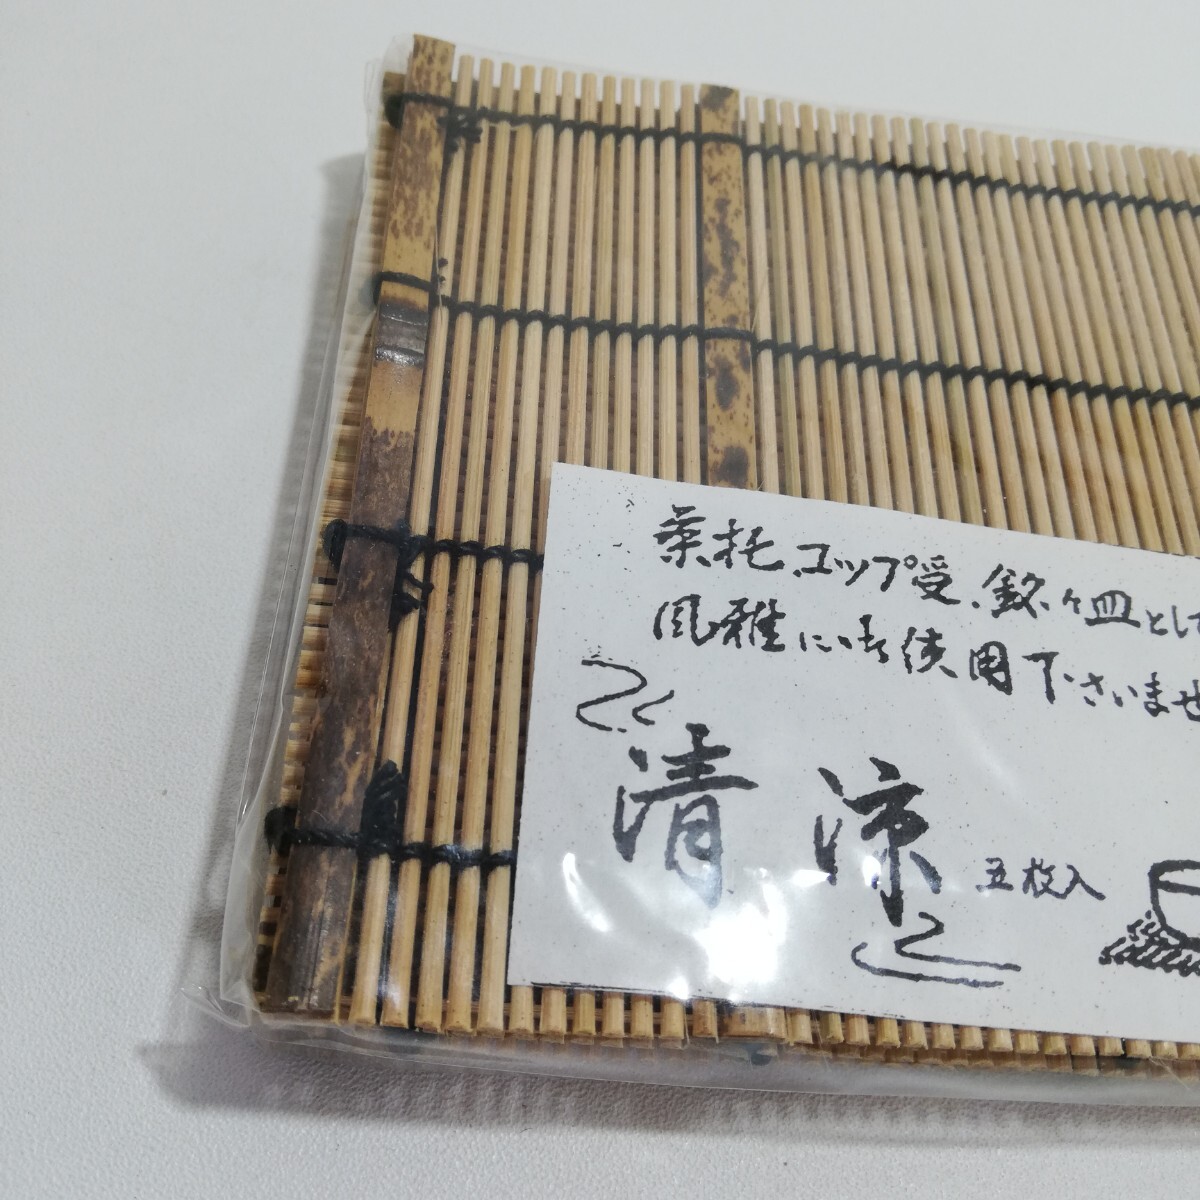 茶托、コップ受、銘々皿とし
風雅にお使用下さいませ
清涼
五枚入